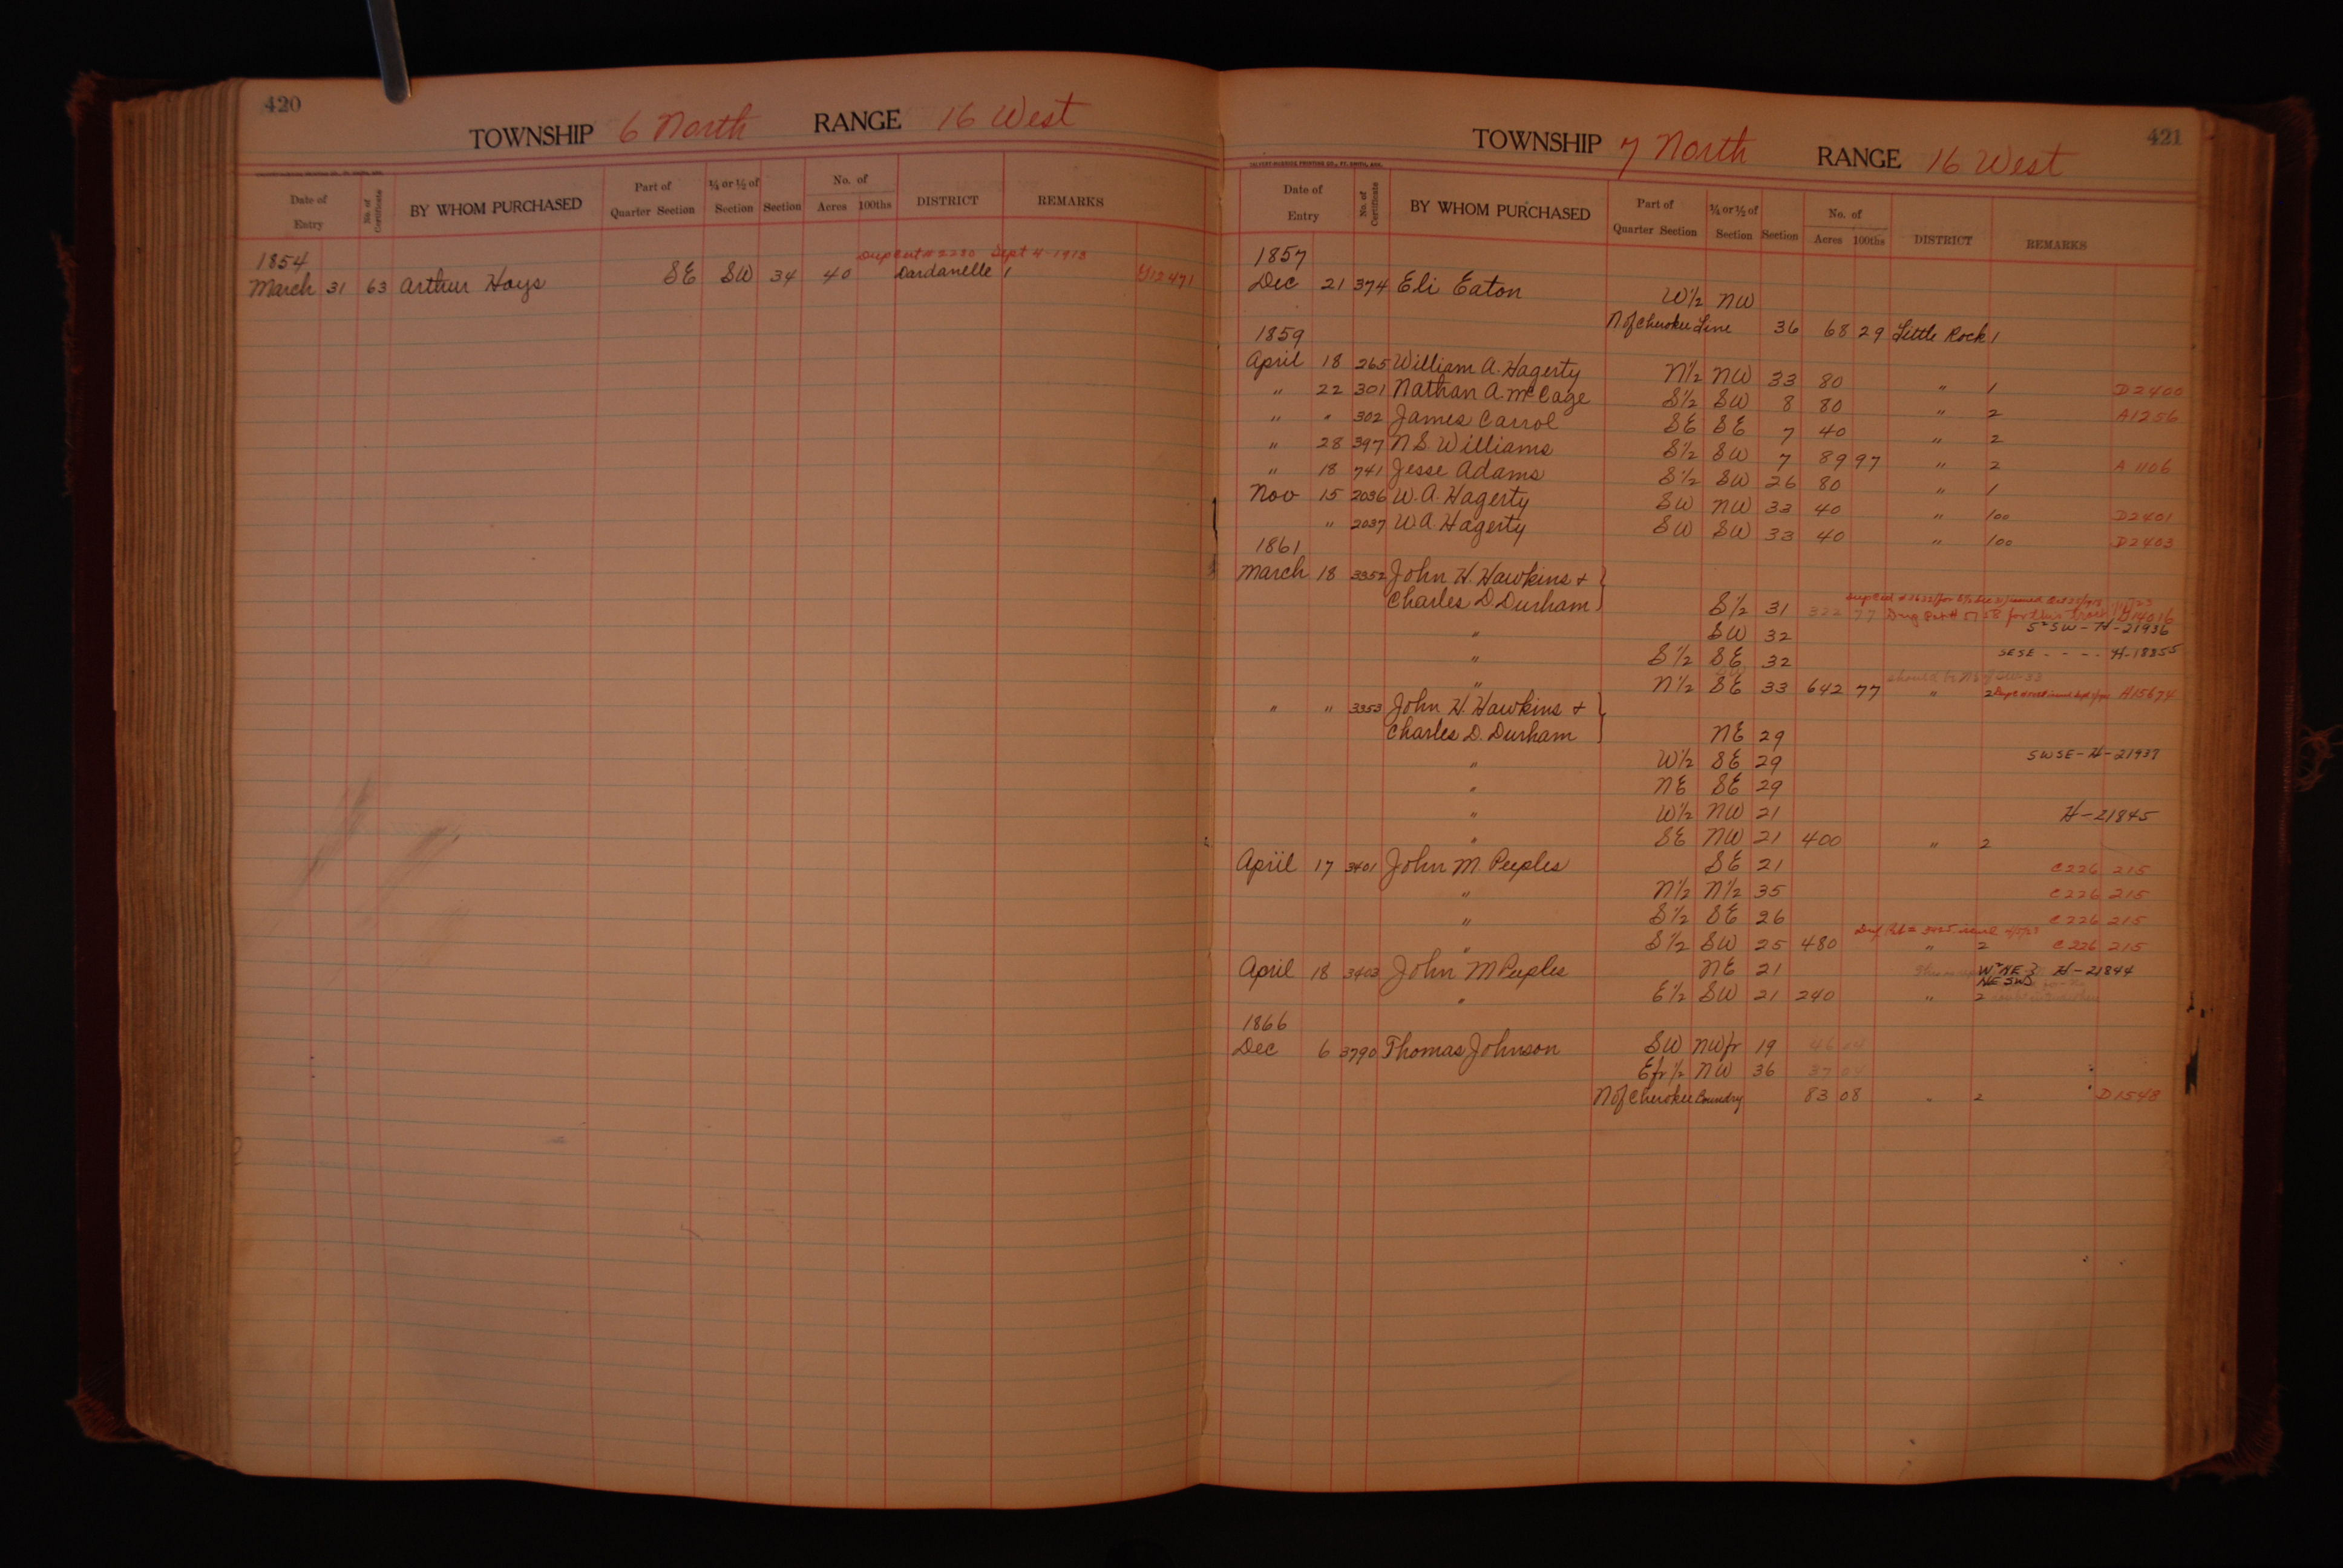 420
TOWNSHIP 6 North RANGE 16 West
Date of Entry No. of Certificate BY WHOM PURCHASED Part of Quarter Section ¼ or ½ of Section Section No. of Acres 100ths DISTRICT REMARKS
1854 Dup Cert # 2230 Sept 4 - 1913
March 31 63 Arthur Hays SE SW 34 40 Dardanelle 1
421
TOWNSHIP 7 North RANGE 16 West
Date of Entry No. of Certificate BY WHOM PURCHASED Part of Quarter Section ¼ or ½ of Section Section No. of Acres 100ths DISTRICT REMARKS
1857
Dec 21 374 Eli Eaton W½ NW
N of Cherokee Line 36 68 29 Little Rock 1
1859
April 18 265 William A. Hagerty N½ NW 33 80 " 1 D2400
" 22 301 Nathan A. McCage S½ SW 8 80 " 2 A1256
" " 302 James Carrol SE SE 7 40 " 2
" 28 397 N S. Williams S½ SW 7 89 97 " 2 A 1106
" 18 741 Jesse Adams S½ SW 26 80 " 1
Nov 15 2036 W. A. Hagerty SW NW 33 40 " 100 D2401
" 2037 W. A. Hagerty SW SW 33 40 " 100 D2403
1861
March 18 3352 John H. Hawkins +
Charles D. Durham S½ 31 322 77 for this tract D14016
" SW 32 S² SW - H - 21936
" S½ SE 32 SESE - - - - H-18355
" N½ SE 33 642 77 " 2 A15674
" " 3353 John H. Hawkins +
Charles D. Durham NE 29
" W½ SE 29 SWSE - H - 21937
" NE SE 29
" W½ NW 21 H - 21845
" SE NW 21 400 " 2
April 17 3401 John M. Peeples SE 21 C226 215
" N½ N½ 35 C226 215
" S½ SE 26 C226 215
" S½ SW 25 480 " 2 C226 215
April 18 3403 John M Peeples NE 21 W² NE H - 21844
NE SW
" E½ SW 21 240 " 2
1866
Dec 6 3790 Thomas Johnson SW NWfr 19 46 04
Efr½ NW 36 37 04
N of Cherokee Boundry 83 08 " 2 D1548